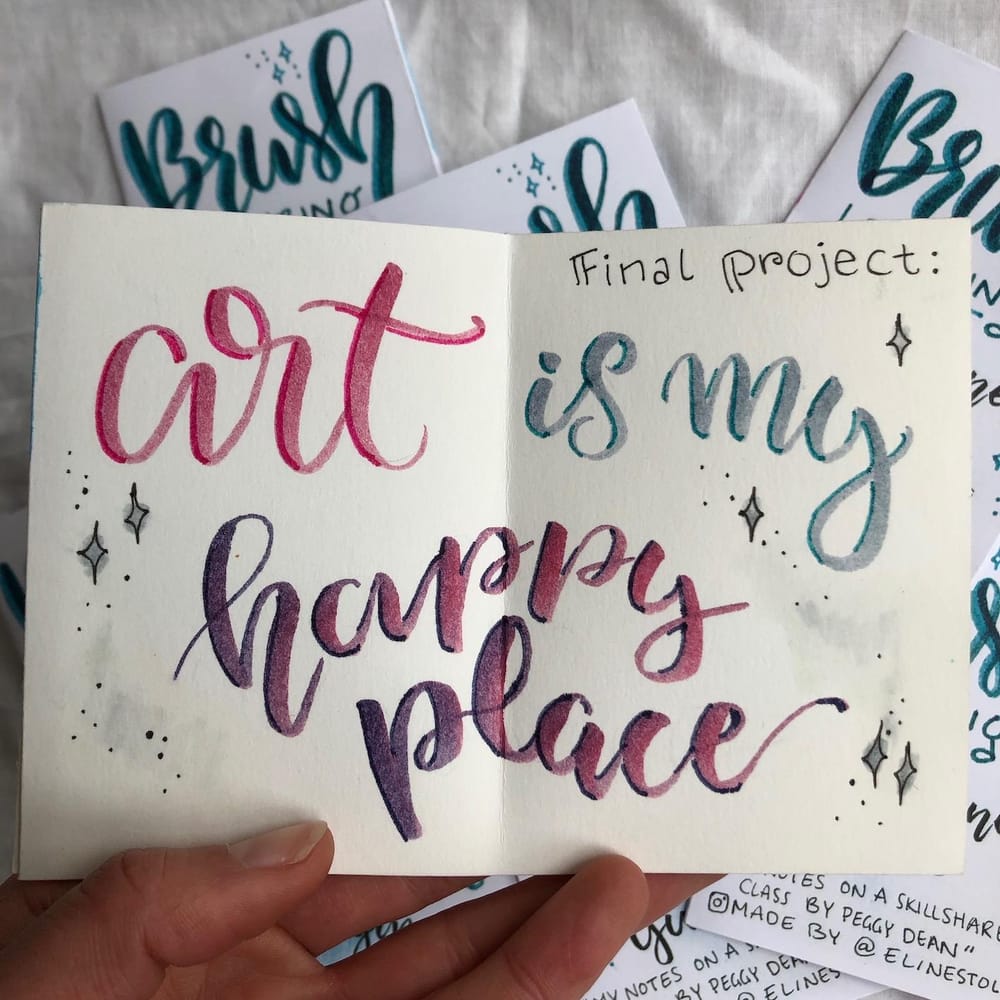 Brush
Final project:
art is my
happy
place
NOTES ON A SKILLSHARE
CLASS BY PEGGY DEAN"
MADE BY @ELINESTOL
MY NOTES ON A
BY PEGGY DEAN
@ELINES